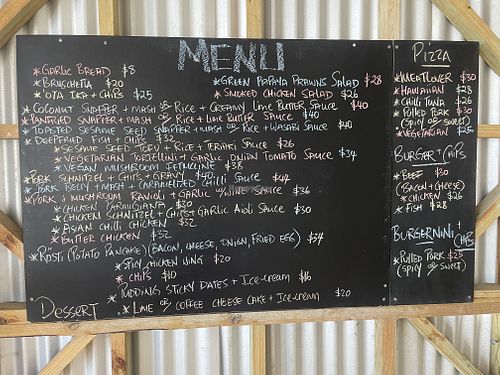 MENU
* GARLIC BREAD $8
* BRUSCHETTA $20
* OTA DAY + CHIPS $25
* GREEN PAPAYA PRAWNS SALAD $28
* SMOKED CHICKEN SALAD $26
* COCONUT SNAPPER + MASH OR RICE + CREAMY LIME BUTTER SAUCE $40
* PANFRIED SNAPPER + MASH OR RICE + LIME BUTTER SAUCE $40
* TOASTED SESAME SEED SNAPPER + MASH OR RICE + WASABI SAUCE $40
* DEEPFRIED FISH + CHIPS $32
* SESAME SEED TOFU + RICE + TERIAKI SAUCE $26
* VEGETARIAN TORTELLINI + GARLIC ONION TOMATO SAUCE $34
* VEGAN MUSHROOM FETUCCINE $36
* PORK SCHNITZEL + CHIPS + GRAVY $40
* PORK BELLY + MASH + CARAMELIZED CHILLI SAUCE $42
* PORK + MUSHROOM RAVIOLI + GARLIC SAUCE $36
* CHICKEN PARMIGIANA $30
* CHICKEN SCHNITZEL + CHIPS + GARLIC AIOLI SAUCE $30
* ASIAN CHILLI CHICKEN $32
* BUTTER CHICKEN $32
* RÖSTI (POTATO PANCAKE) (BACON, CHEESE, ONION, FRIED EGG) $34
* SPICY CHICKEN WING $20
* CHIPS $10
* PUDDING STICKY DATES + ICE-CREAM $16
DESSERT * LIME OR COFFEE CHEESE CAKE + ICE-CREAM $20
PIZZA
* MEATLOVER $30
* HAWAIIAN $28
* CHILLI TUNA $26
* PULLED PORK $30
(SPICY OR SWEET)
* VEGETARIAN $25
BURGER + CHIPS
* BEEF $30
(BACON + CHEESE)
* CHICKEN $26
* FISH $28
BURGERNINI + CHIPS
* PULLED PORK $25
(SPICY OR SWEET)